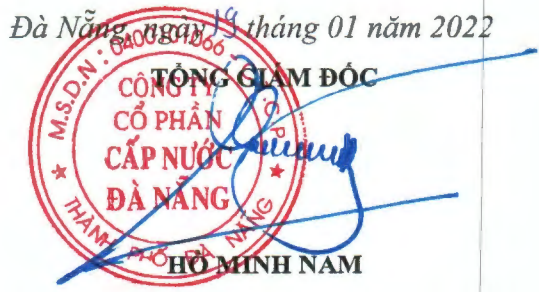 Đà Nẵng, ngày 19 tháng 01 năm 2022
TỔNG GIÁM ĐỐC
M.S.D.N: 0400101066 - C.T.C.P
CÔNG TY
CỔ PHẦN
CẤP NƯỚC
ĐÀ NẴNG
THÀNH PHỐ ĐÀ NẴNG
HỒ MINH NAM